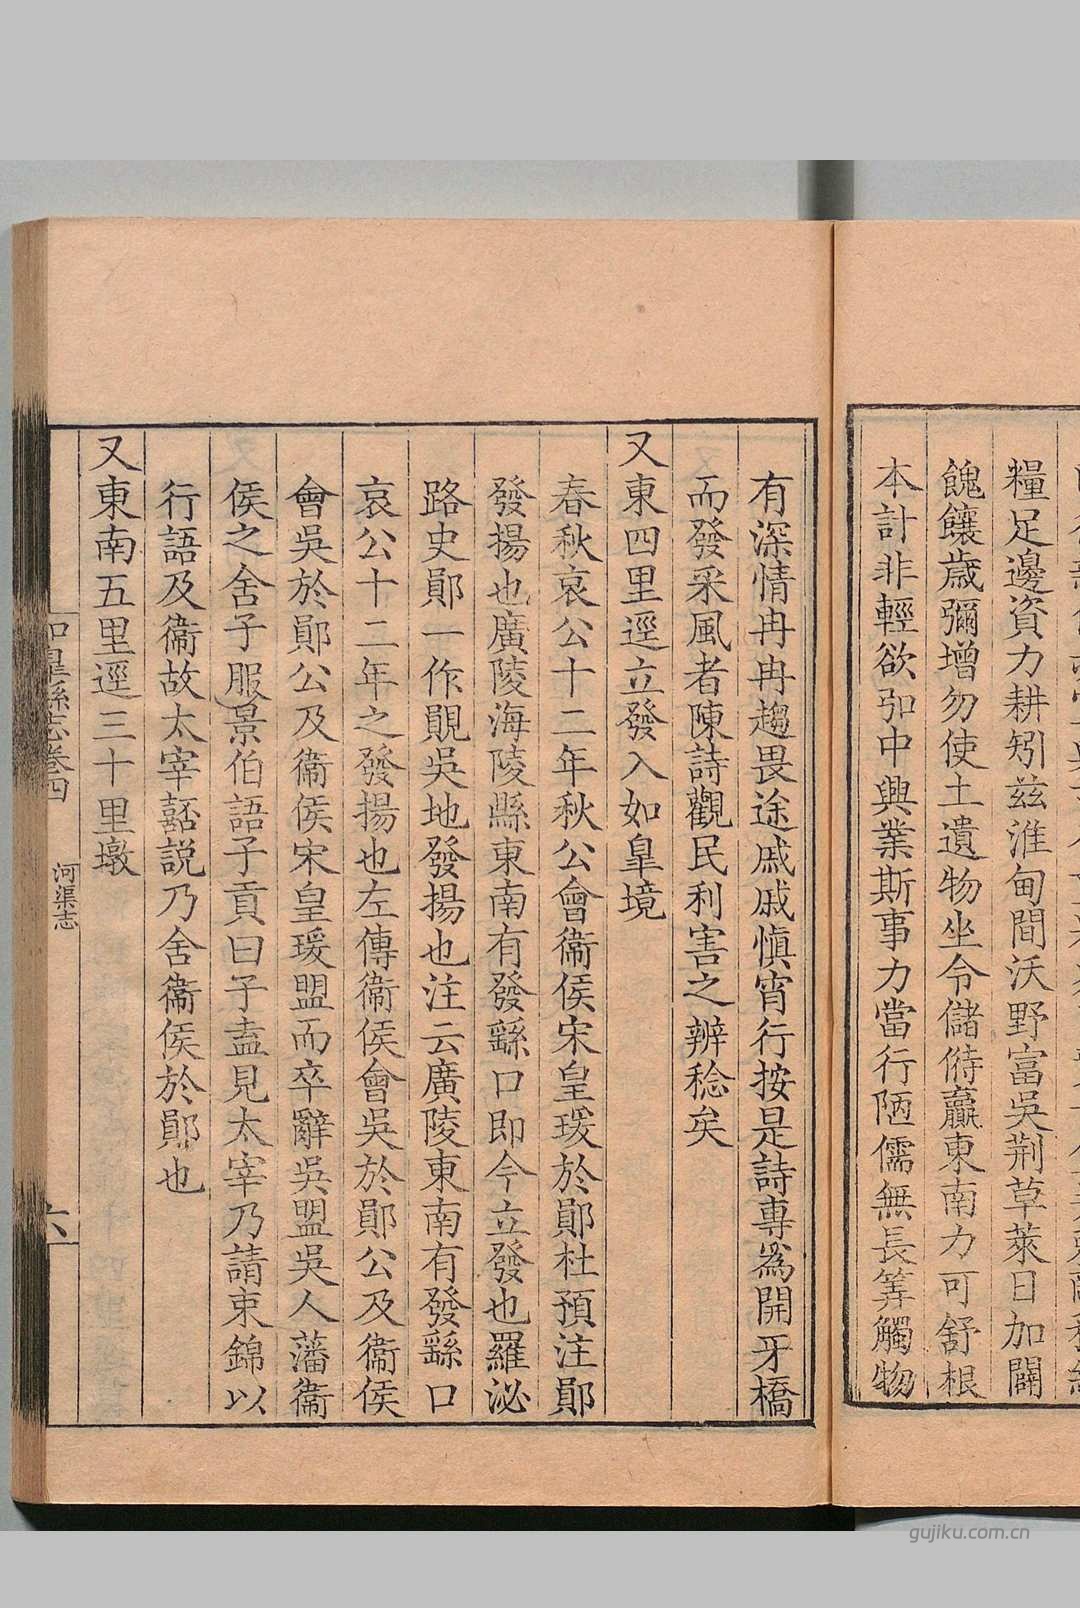 糧足邊資力耕矧兹淮甸間沃野富吳荆草萊日加闢
餽饟歲彌增勿使土遺物坐令儲偫羸東南力可舒根
本計非輕欲弨中興業斯事力當行陋儒無長筭觸物
有深情冉冉趨畏途戚戚愼宵行按是詩專爲開牙橋
而發采風者陳詩觀民利害之辨稔矣
又東四里逕立發入如臯境
春秋哀公十二年秋公會衞侯宋皇瑗於鄖杜預注鄖
發揚也廣陵海陵縣東南有發繇口即今立發也羅泌
路史鄖一作䢵吳地發揚也注云廣陵東南有發繇口
哀公十二年之發揚也左傳衞侯會吳於鄖公及衞侯
會吳於鄖公及衞侯宋皇瑗盟而卒辭吳盟吳人藩衞
侯之舍子服景伯語子貢曰子盍見太宰乃請束錦以
行語及衞故太宰嚭說乃舍衞侯於鄖也
又東南五里逕三十里墩
如臯縣志卷四
河渠志
六
gujiku.com.cn